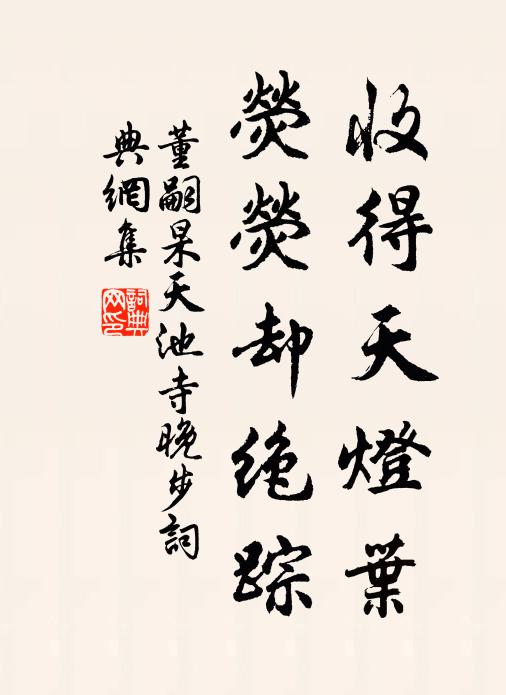 收得天燈葉
熒熒却絶踪
董嗣杲天池寺晚步詞
典網集
詞典網印